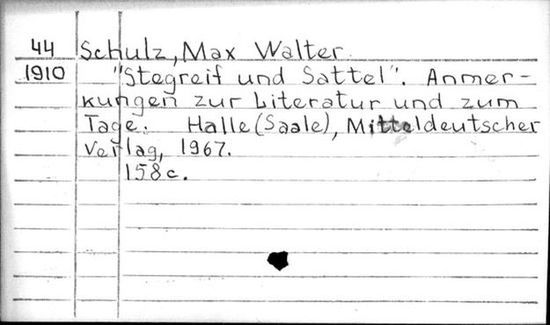 44 Schulz, Max Walter.
1910 "Stegreif und Sattel". Anmer-
kungen zur Literatur und zum
Tage. Halle (Saale), Mitteldeutscher
Verlag, 1967.
158 c.